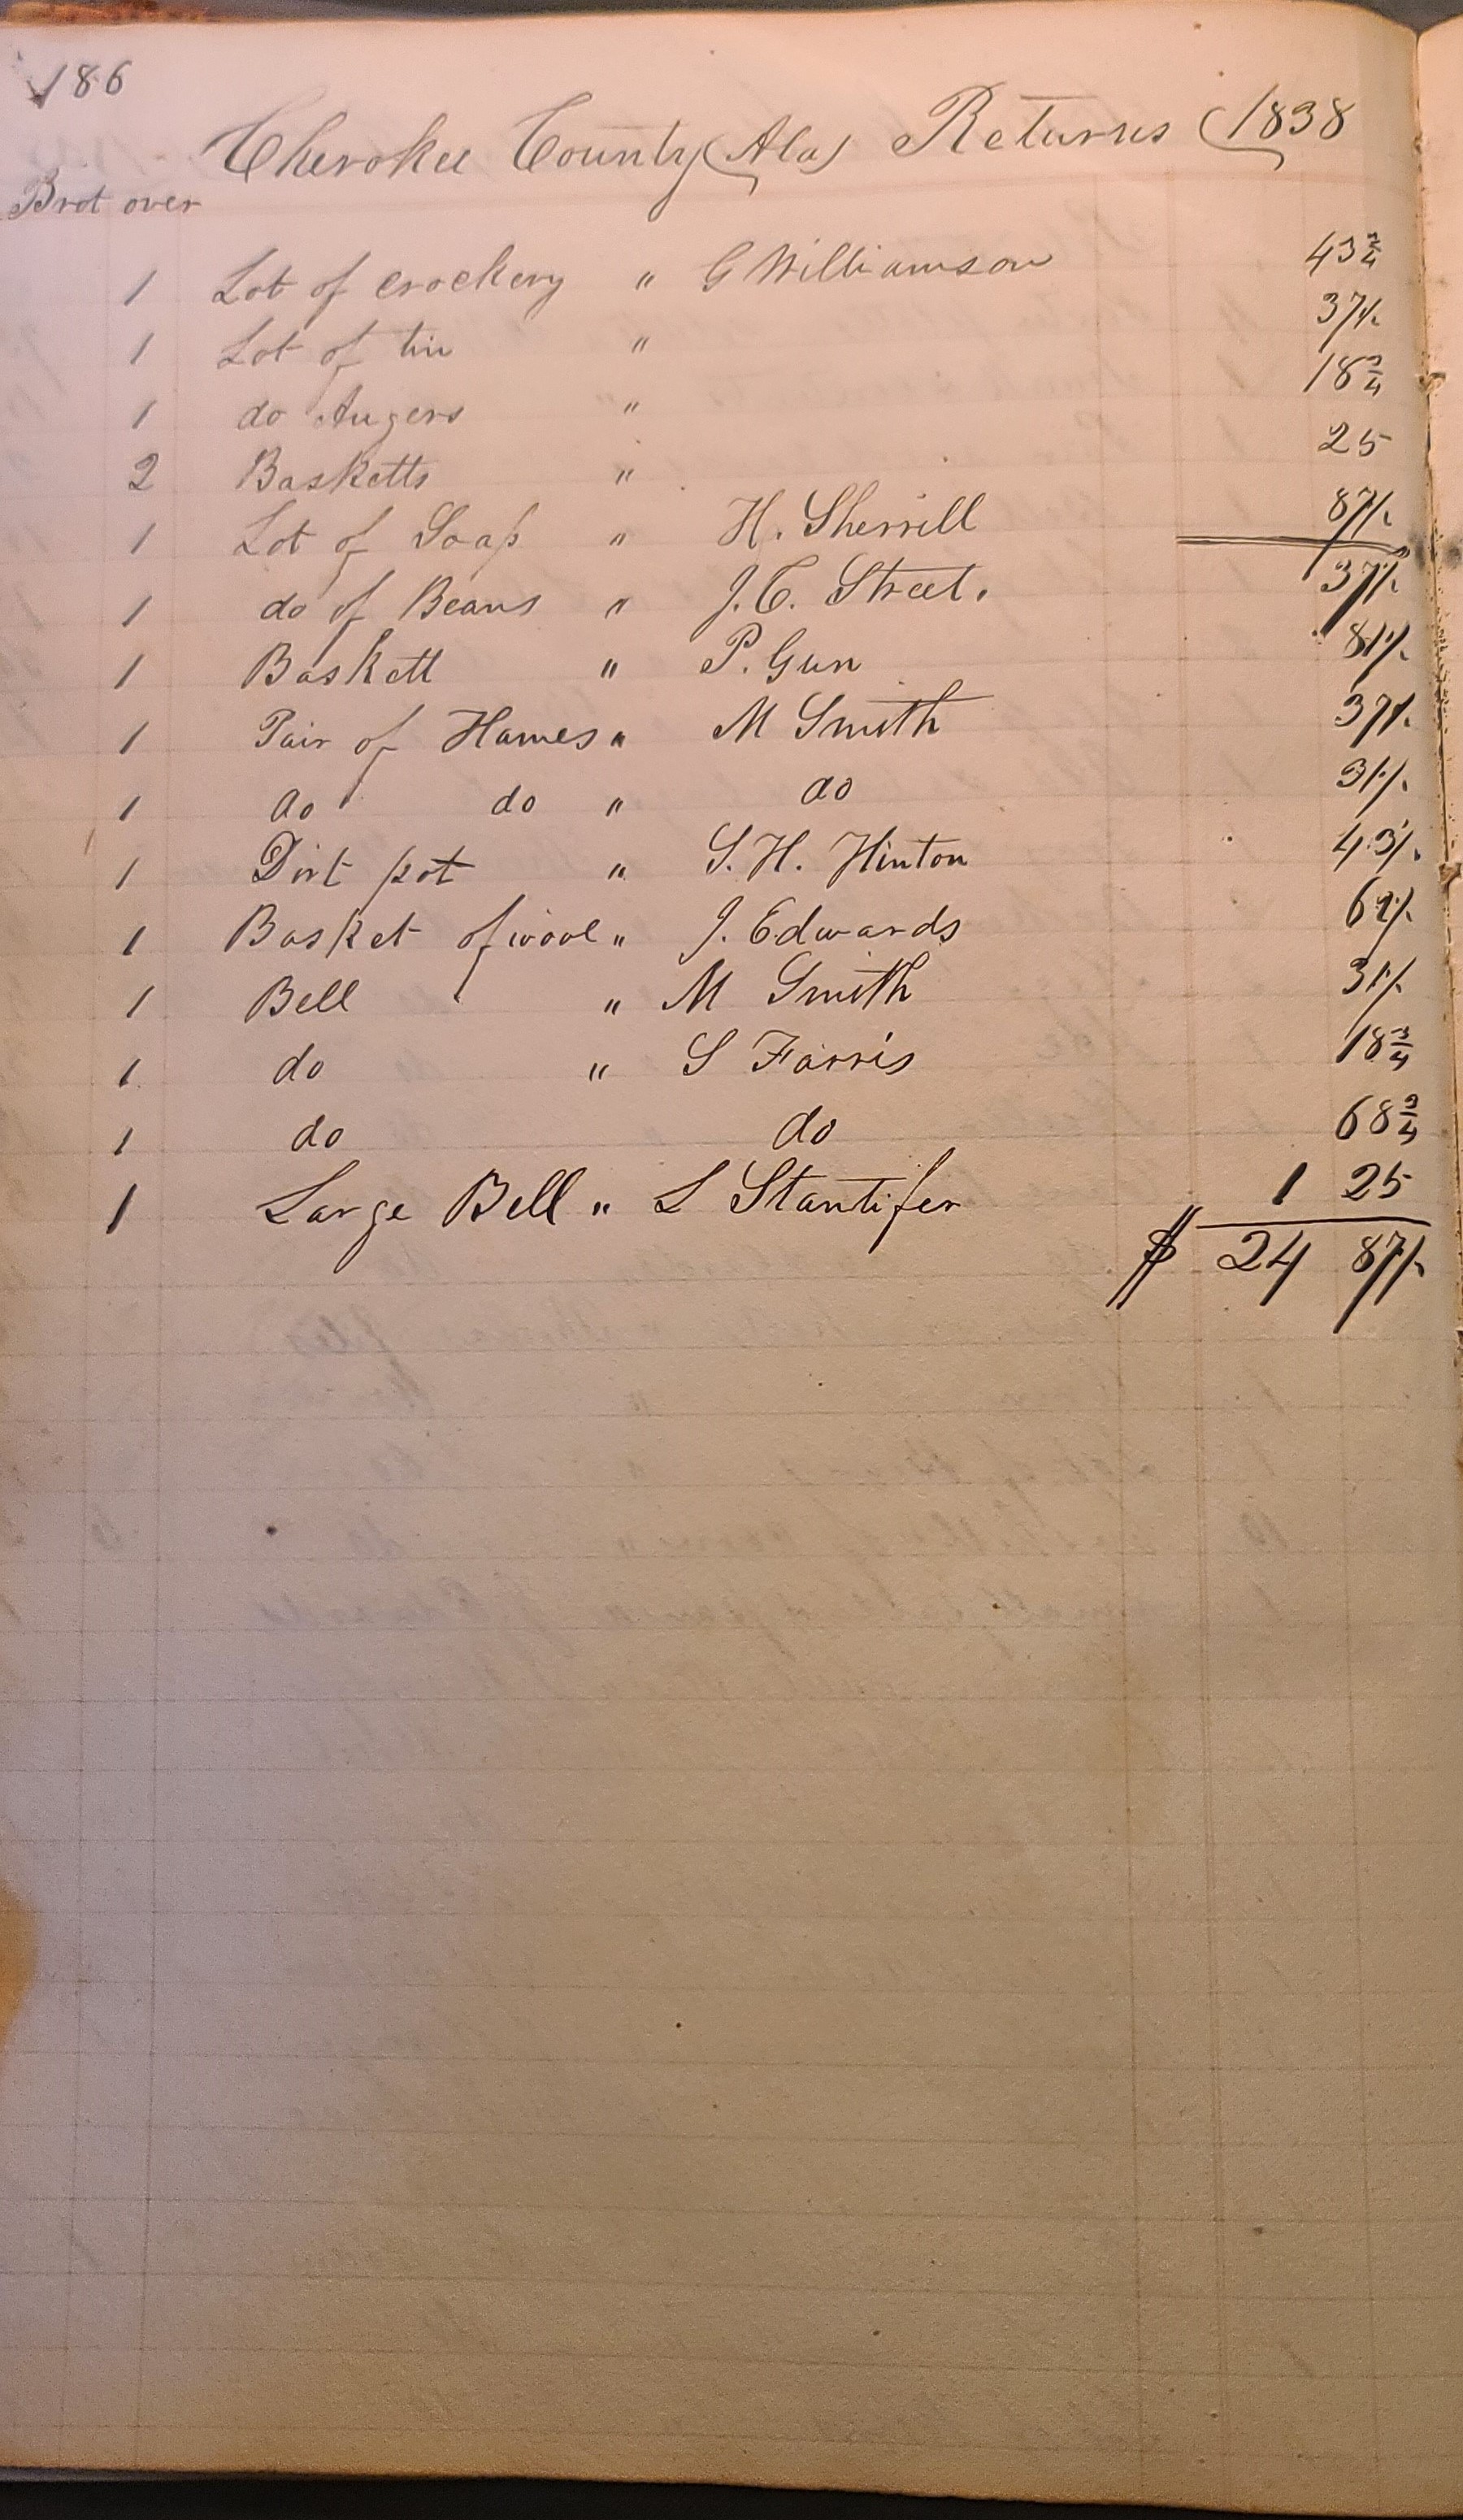 186
Cherokee County (Ala) Returns (1838
Brot over
1 Lot of crockery " G Williamson 43 3/4
1 Lot of tin " 37 1/2
1 do Augers " 18 3/4
2 Basketts " 25
1 Lot of Soap " H. Sherrill 87 1/2
1 do of Beans " J. C. Street. 37 1/2
1 Baskett " P. Gun 81 1/4
1 Pair of Hames " M Smith 37 1/2
1 do do " do 31 1/4
1 Dirt pot " S. H. Hinton 43 3/4
1 Basket of wool " J. Edwards
1 Bell " M Smith 31 1/4
1 do " S Farris 18 3/4
1 do do 68 3/4
1 Large Bell " L Stantifer 1 25
$ 24 87 1/2